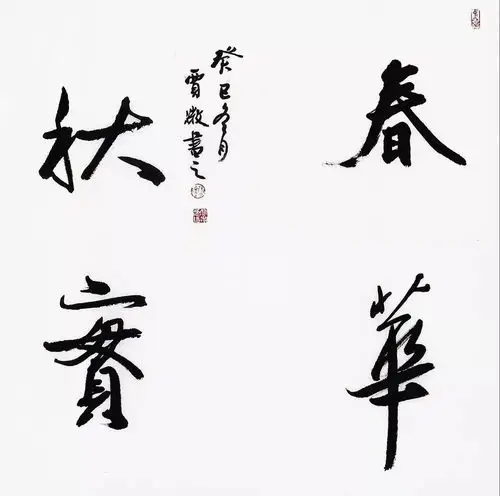 春華
秋實
癸巳冬月
賈書之